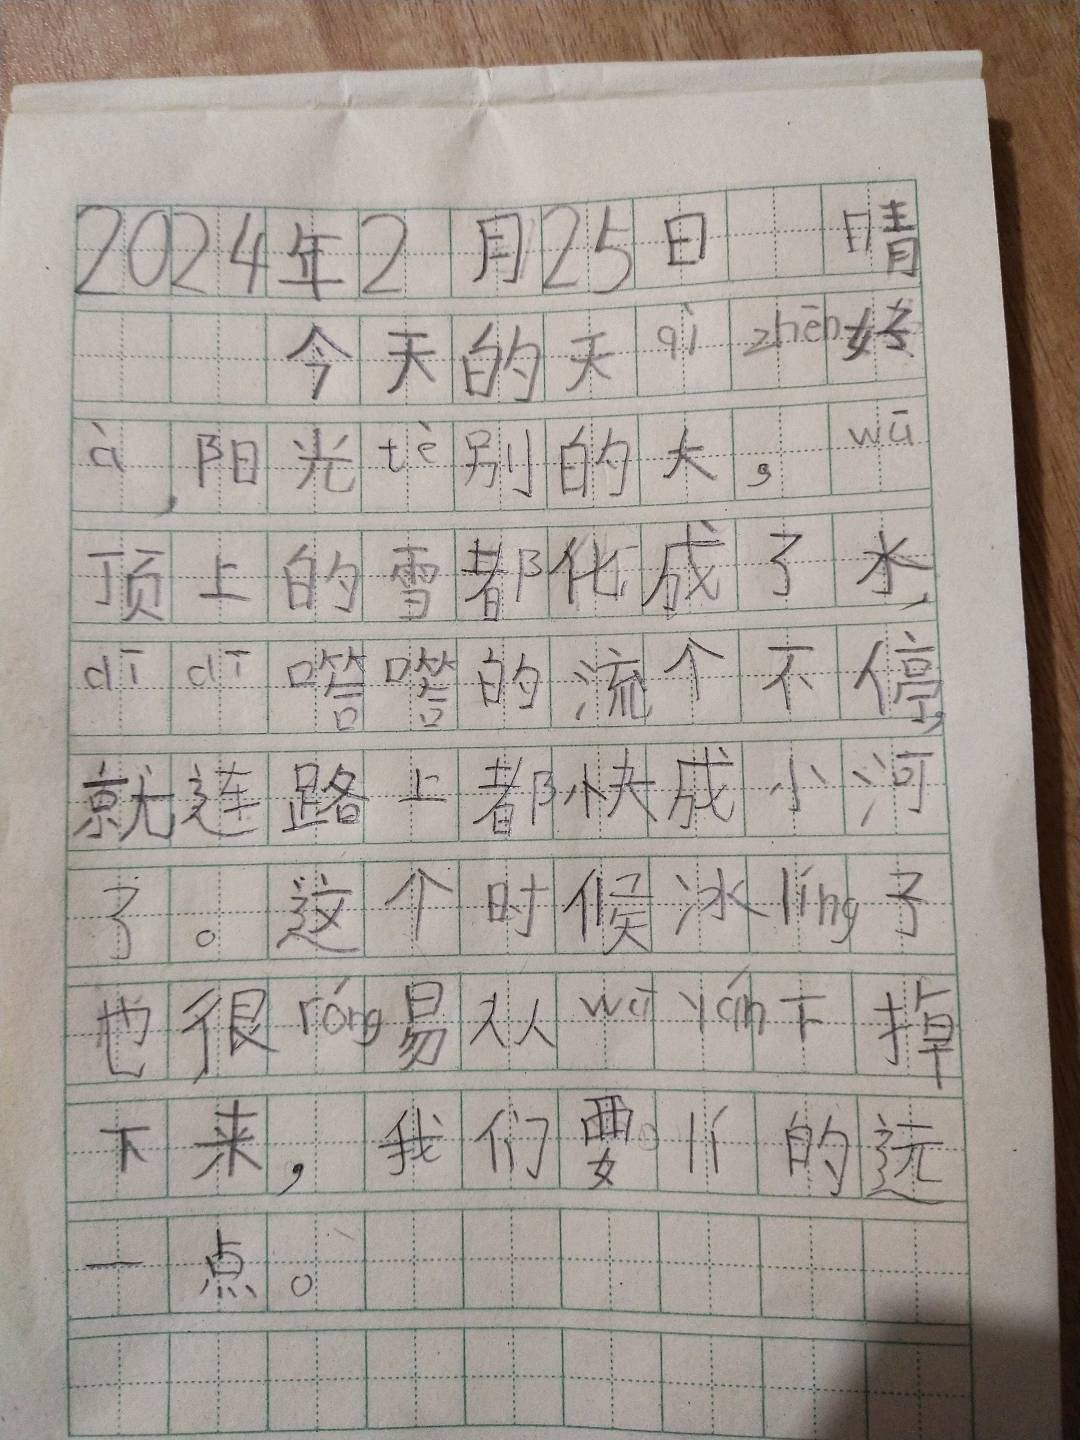 2024年2月25日 晴
今天的天qìzhēn好
à,阳光tè别的大,wū
顶上的雪都化成了水,
dīdī嗒嗒的流个不停,
就连路上都快成小河
了。这个时候冰líng子
也很róng易从wūyán下掉
下来,我们要lí的远
一点。